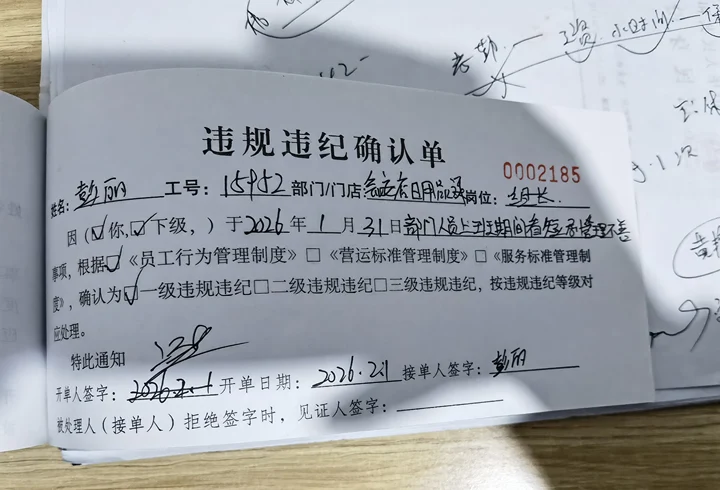 考勤 工资 小时间
1次
违规违纪确认单
0002185
姓名:彭丽 工号:15952 部门/门店 日用品课 岗位:组长
因(☑你,☑下级,)于2026年1月31日部门人员上班期间看短 管理不善
事项,根据☑《员工行为管理制度》□《营运标准管理制度》□《服务标准管理制
度》,确认为☑一级违规违纪□二级违规违纪□三级违规违纪,按违规违纪等级对
应处理。
特此通知
开单人签字:2026.2.1 开单日期:2026.2.1 接单人签字:彭丽
被处理人(接单人)拒绝签字时,见证人签字: